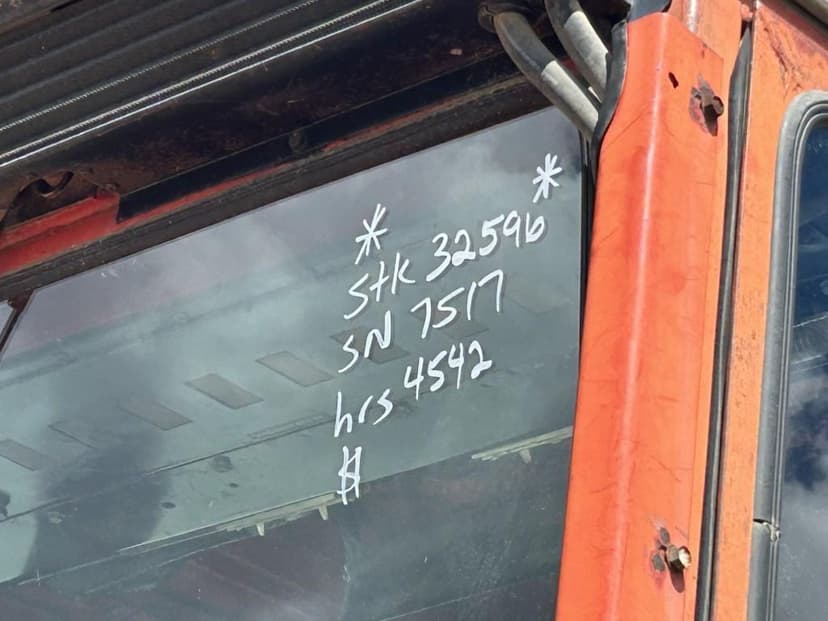 * *
Stk 32596
SN 7517
hrs 4542
$